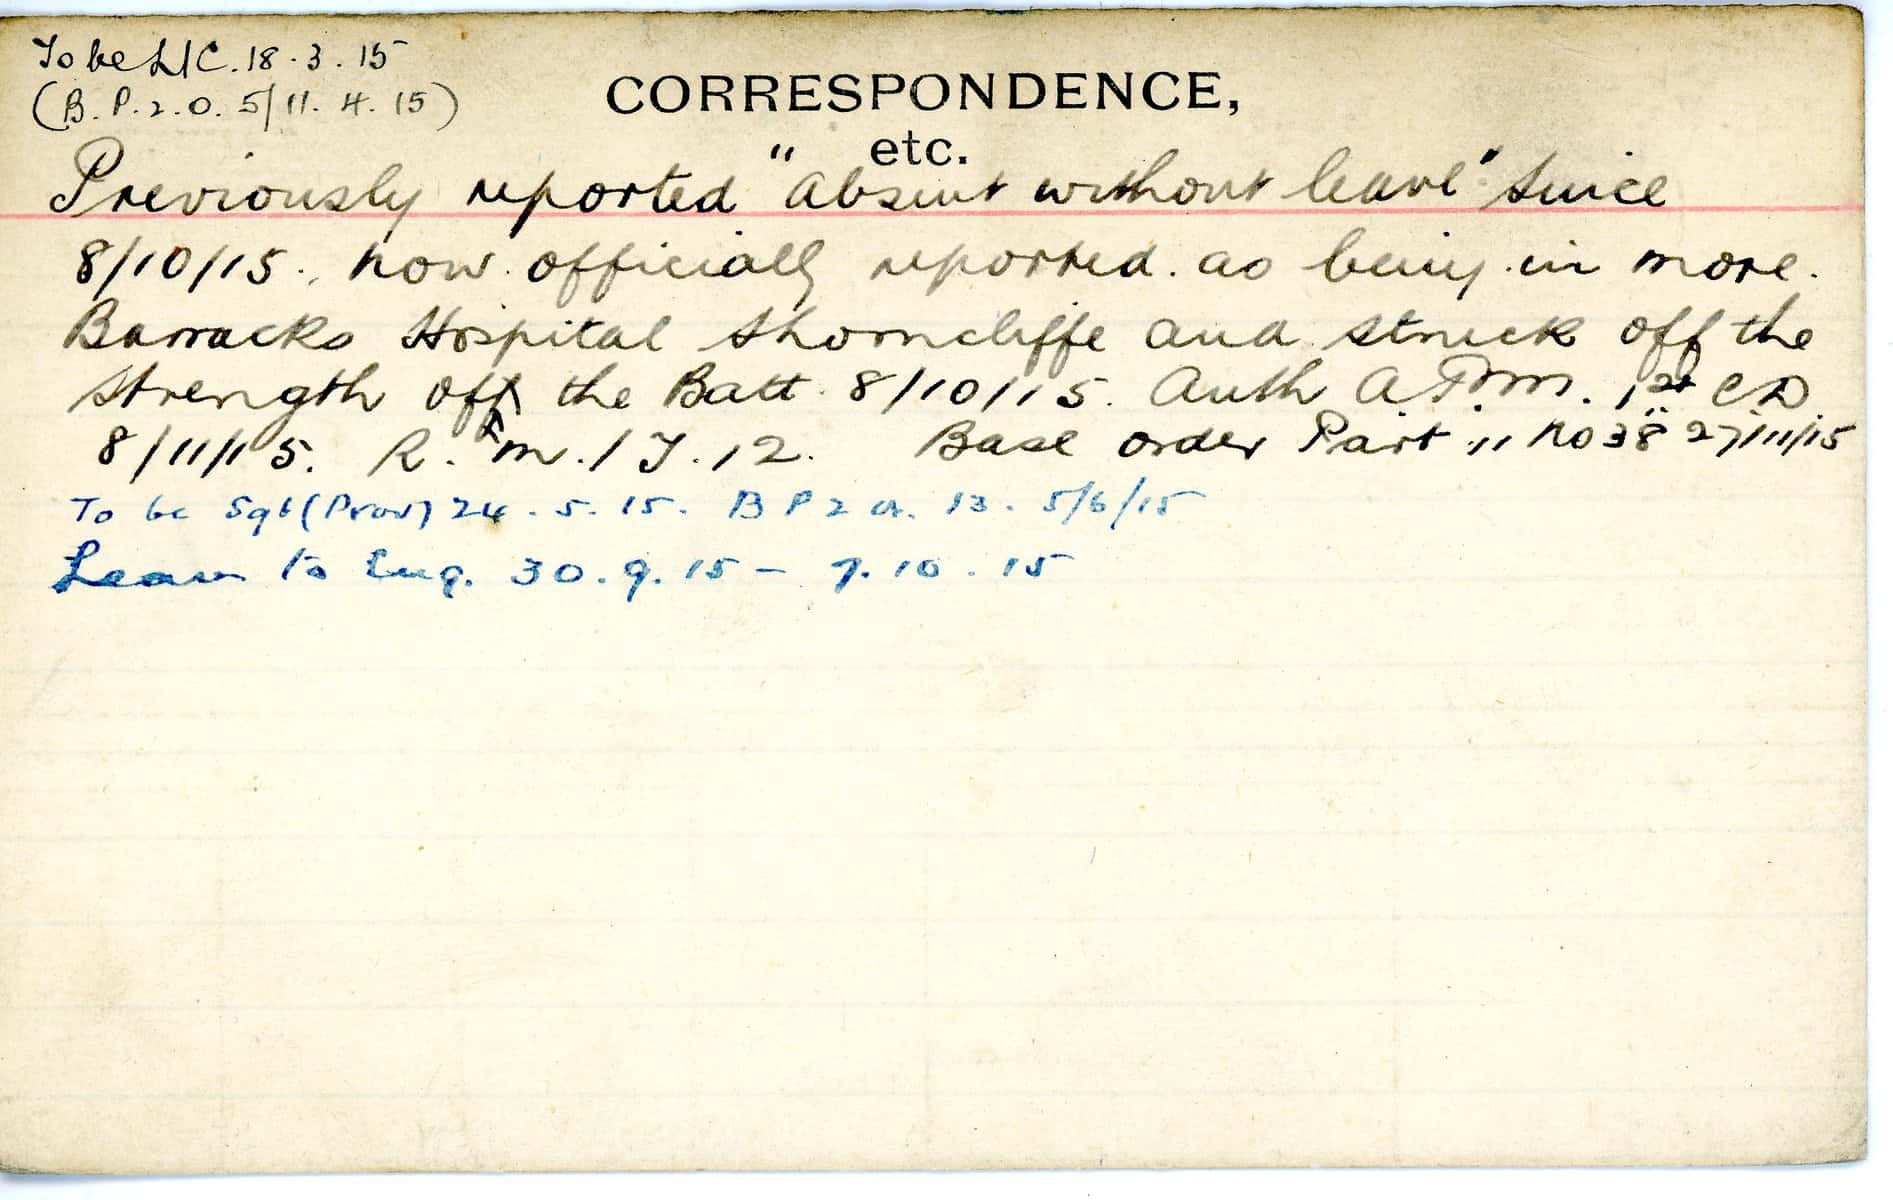 To be L/C. 18.3.15
(B.P.2.O. 5/11.4.15)
CORRESPONDENCE,
etc.
Previously reported "absent without leave" since
8/10/15. now officially reported. as being in more.
Barracks Hospital Shorncliffe and struck off the
strength off the Batt. 8/10/15. Auth A.P.M. 1st CD
8/11/15. R.M./J.12. Base order Part 11 No 38 27/11/15
To be Sgt (Prov) 24.5.15. B P 2 O. 13. 5/6/15
Leave to Eng. 30.9.15 - 7.10.15